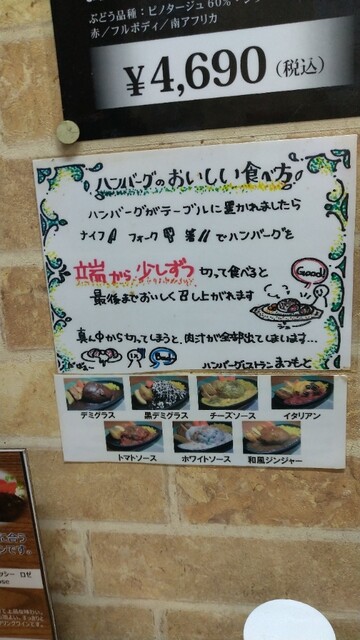 ぶどう品種：ピノタージュ60％・シラ
赤／フルボディ／南アフリカ
¥4,690（税込）
ハンバーグのおいしい食べ方
ハンバーグがテーブルに置かれましたら
ナイフ フォーク 箸 でハンバーグを
端から少しずつ 切って食べると
Good!
最後までおいしく召し上がれます
ジュー
真ん中から切ってしまうと、肉汁が全部出てしまいます…
Bad
ハンバーグレストラン まつもと
デミグラス
黒デミグラス
チーズソース
イタリアン
トマトソース
ホワイトソース
和風ジンジャー